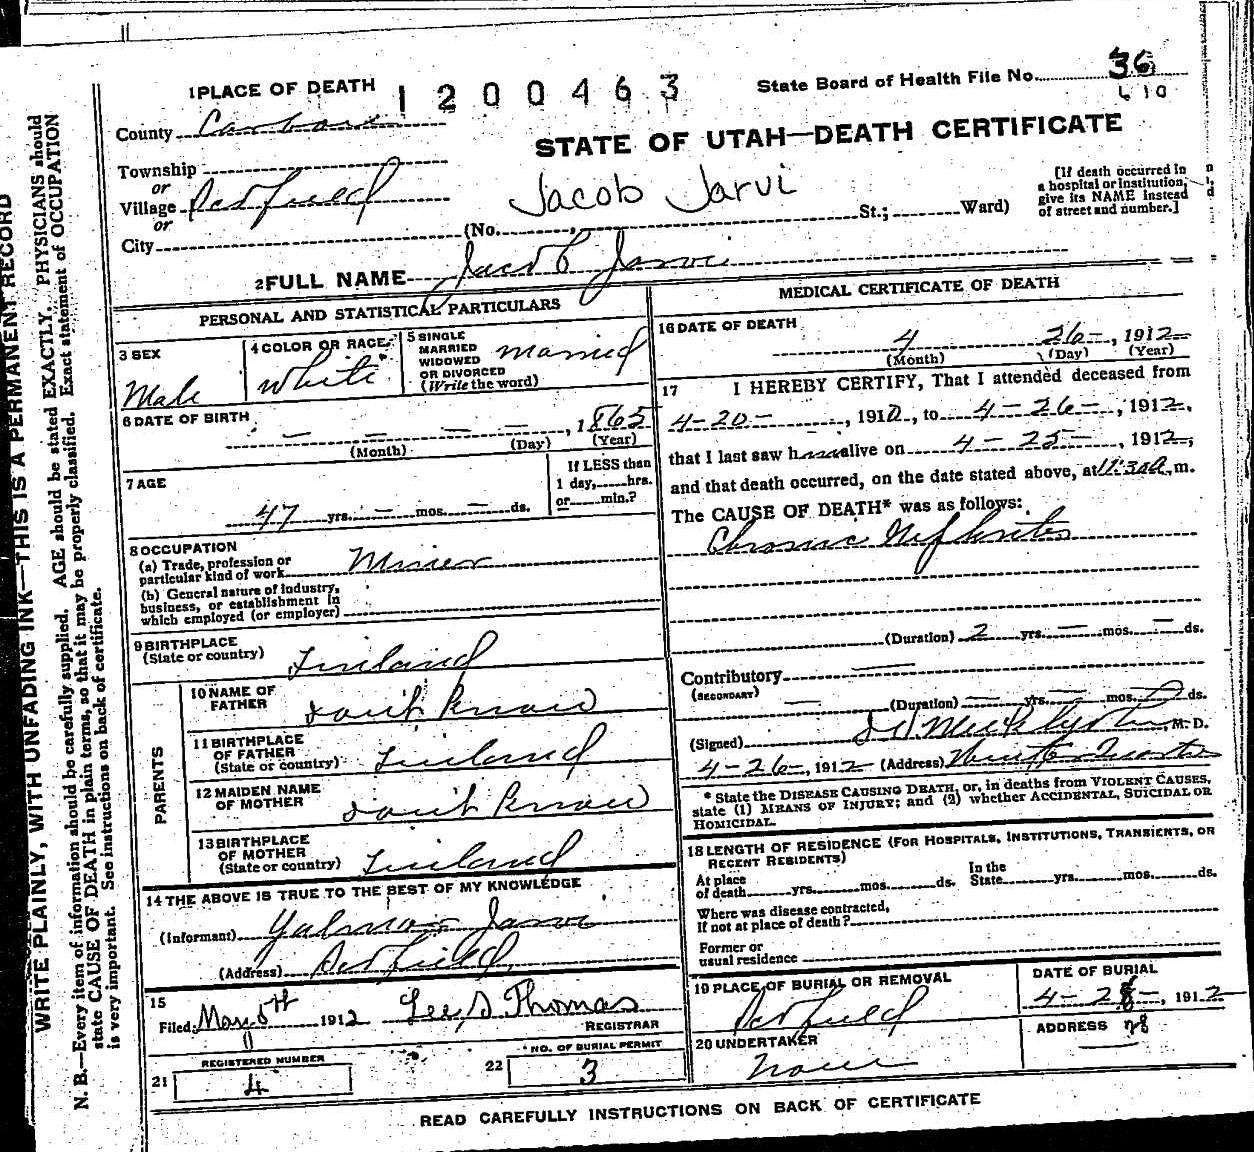 1 PLACE OF DEATH
1200463
State Board of Health File No. 36
610
County Carbon
STATE OF UTAH—DEATH CERTIFICATE
Township
or
Village
or
City
Jacob Jarvi
(No. , St.; Ward)
[If death occurred in
a hospital or institution,
give its NAME instead
of street and number.]
2 FULL NAME Jacob Jarvi
PERSONAL AND STATISTICAL PARTICULARS
3 SEX
Male
4 COLOR OR RACE
White
5 SINGLE
MARRIED
WIDOWED
OR DIVORCED
(Write the word)
Married
6 DATE OF BIRTH
— — — — , 1865
(Month) (Day) (Year)
7 AGE
47 yrs. — mos. — ds.
If LESS than
1 day, hrs.
or min.?
8 OCCUPATION
(a) Trade, profession or
particular kind of work Miner
(b) General nature of industry,
business, or establishment in
which employed (or employer)
9 BIRTHPLACE
(State or country) Finland
PARENTS
10 NAME OF
FATHER dont Know
11 BIRTHPLACE
OF FATHER
(State or country) Finland
12 MAIDEN NAME
OF MOTHER dont Know
13 BIRTHPLACE
OF MOTHER
(State or country) Finland
14 THE ABOVE IS TRUE TO THE BEST OF MY KNOWLEDGE
(Informant) Yalmar Jarvi
(Address)
15
Filed, May 5th 1912 Lee, S. Thomas
REGISTRAR
REGISTERED NUMBER
21 4
NO. OF BURIAL PERMIT
22 3
MEDICAL CERTIFICATE OF DEATH
16 DATE OF DEATH
4 26 — , 1912
(Month) (Day) (Year)
17 I HEREBY CERTIFY, That I attended deceased from
4-20- , 1912, to 4-26- , 1912,
that I last saw h alive on 4-25- , 1912,
and that death occurred, on the date stated above, at 11:30a m.
The CAUSE OF DEATH* was as follows:
Chronic Nephritis
(Duration) 2 yrs. — mos. — ds.
Contributory
(SECONDARY)
(Duration) — yrs. — mos. ds.
(Signed) M. D.
4-26-, 1912 (Address) Winter Quarters
* State the DISEASE CAUSING DEATH, or, in deaths from VIOLENT CAUSES,
state (1) MEANS OF INJURY; and (2) whether ACCIDENTAL, SUICIDAL OR
HOMICIDAL.
18 LENGTH OF RESIDENCE (FOR HOSPITALS, INSTITUTIONS, TRANSIENTS, OR
RECENT RESIDENTS)
At place
of death yrs. mos. ds.
In the
State yrs. mos. ds.
Where was disease contracted,
If not at place of death?
Former or
usual residence
19 PLACE OF BURIAL OR REMOVAL
DATE OF BURIAL
4-28-, 1912
20 UNDERTAKER
None
ADDRESS 28
READ CAREFULLY INSTRUCTIONS ON BACK OF CERTIFICATE
WRITE PLAINLY, WITH UNFADING INK—THIS IS A PERMANENT RECORD
N. B.—Every item of information should be carefully supplied. AGE should be stated EXACTLY. PHYSICIANS should
state CAUSE OF DEATH in plain terms, so that it may be properly classified. Exact statement of OCCUPATION
is very important. See instructions on back of certificate.